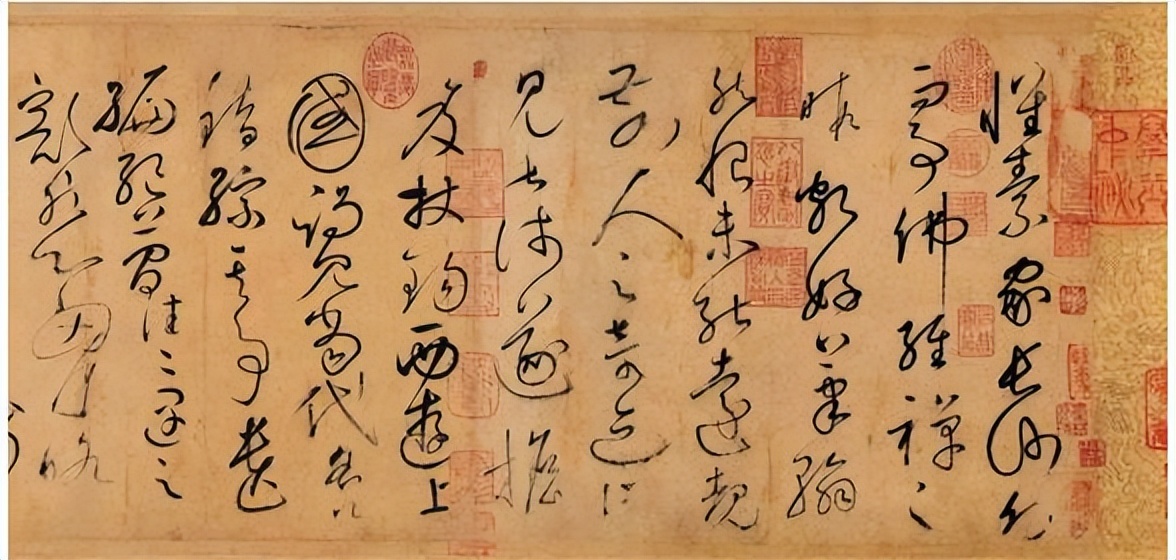 懷素家長沙幼
而事佛經禪之
暇頗好筆翰
然恨未能遠覩
前人之奇迹所
見甚淺遂擔
笈杖錫西遊上
國謁見當代名公
錯綜其事遺
編絕簡往往遇之
豁然心胸略